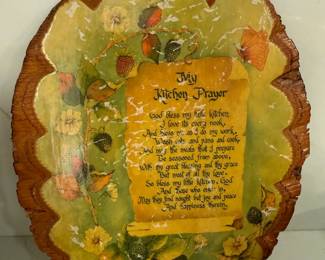 My
Kitchen Prayer
God bless my little kitchen
I love its every nook,
And bless me as I do my work,
Wash pots and pans and cook,
And may the meals that I prepare
Be seasoned from above,
With thy great blessing and thy grace
But most of all thy love.
So bless my little kitchen, God
And those who enter in,
May they find naught but joy and peace
And happiness therein.